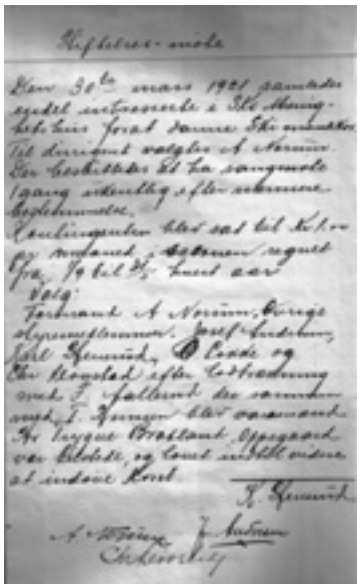 Stiftelses-møte
Den 30te mars 1921 samledes
endel intresserte i Ski Menig-
hets hus forat danne Ski mandskor
Til dirigent valgtes A Norum.
Der besluttedes at ha sangmøte
1 gang ukentlig efter nærmere
bestemmelse.
Kontingenten blev sat til Kr 1.00
pr maaned i sesonen regnet
fra 1/9 til hvert aar
Valg:
Formand A Norum, Øvrige
styremedlemmer. Josef Andersen,
Karl og
Chr efter lodtrækning
med F. der sammen
med T. blev varamand
Hr Trygve Braatlund, Oppegaard
var tilstede, og lovet indtil videre
at indøve Koret
K.
A. Norum J. Andersen